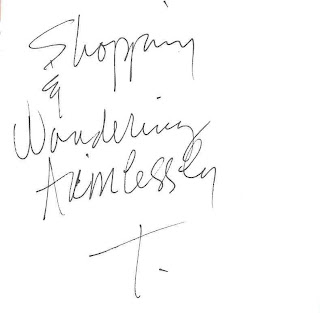 Shopping
&
Wandering
Aimlessly
T.